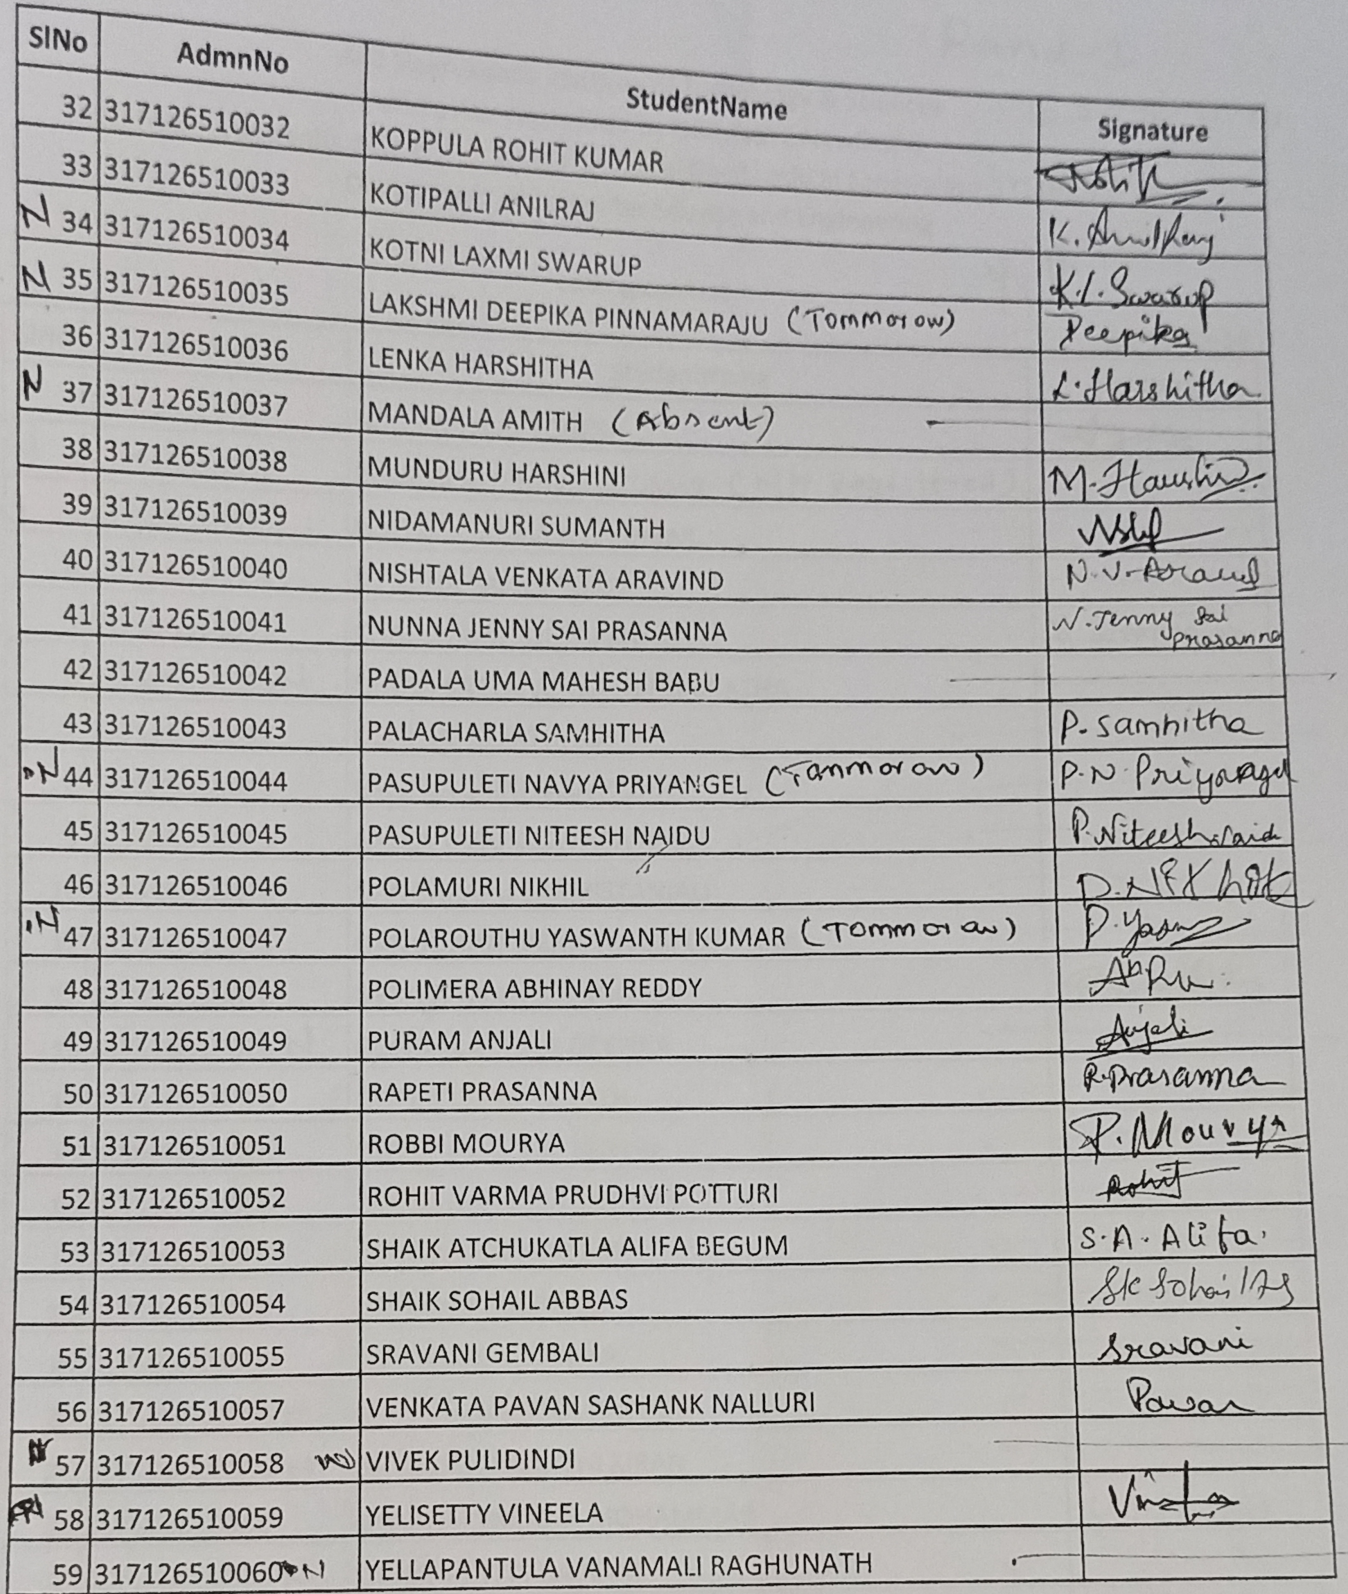 SlNo AdmnNo StudentName Signature
32 317126510032 KOPPULA ROHIT KUMAR
33 317126510033 KOTIPALLI ANILRAJ K. AnilRaj
N 34 317126510034 KOTNI LAXMI SWARUP K.L.Swarup
N 35 317126510035 LAKSHMI DEEPIKA PINNAMARAJU (Tommorow) Deepika
36 317126510036 LENKA HARSHITHA L.Harshitha
N 37 317126510037 MANDALA AMITH (Absent)
38 317126510038 MUNDURU HARSHINI
39 317126510039 NIDAMANURI SUMANTH
40 317126510040 NISHTALA VENKATA ARAVIND N.V.Aravind
41 317126510041 NUNNA JENNY SAI PRASANNA N.Jenny Sai Prasanna
42 317126510042 PADALA UMA MAHESH BABU
43 317126510043 PALACHARLA SAMHITHA P.Samhitha
N 44 317126510044 PASUPULETI NAVYA PRIYANGEL (Tommorow) P.N.Priyangel
45 317126510045 PASUPULETI NITEESH NAIDU P.Niteesh Naidu
46 317126510046 POLAMURI NIKHIL
N 47 317126510047 POLAROUTHU YASWANTH KUMAR (Tommorow)
48 317126510048 POLIMERA ABHINAY REDDY
49 317126510049 PURAM ANJALI Anjali
50 317126510050 RAPETI PRASANNA R.Prasanna
51 317126510051 ROBBI MOURYA R.Mourya
52 317126510052 ROHIT VARMA PRUDHVI POTTURI Rohit
53 317126510053 SHAIK ATCHUKATLA ALIFA BEGUM S.A.Alifa.
54 317126510054 SHAIK SOHAIL ABBAS Sk Sohail
55 317126510055 SRAVANI GEMBALI Sravani
56 317126510057 VENKATA PAVAN SASHANK NALLURI Pavan
57 317126510058 VIVEK PULIDINDI
58 317126510059 YELISETTY VINEELA
59 317126510060 N YELLAPANTULA VANAMALI RAGHUNATH